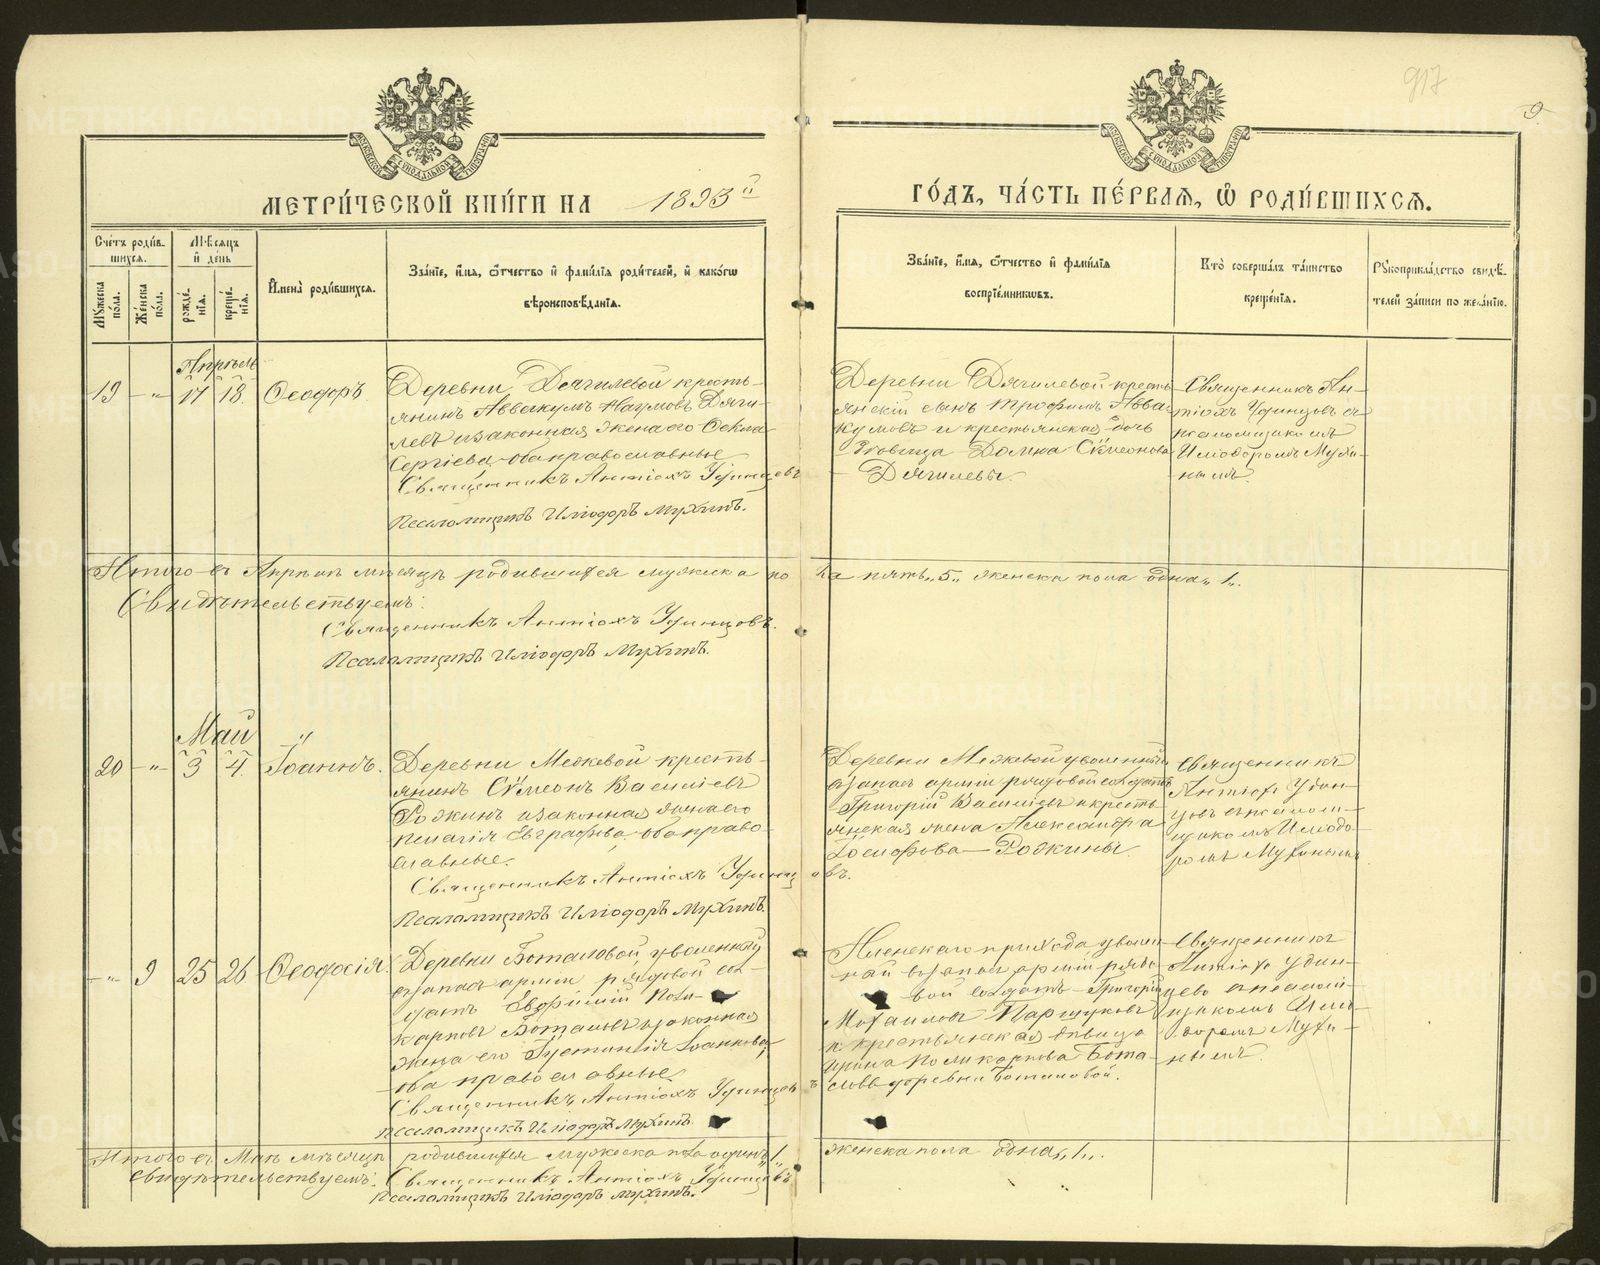 917
9.
МЕТРИ́ЧЕСКОЙ КНИ́ГИ НА 1893й
ГО́ДЪ, ЧА́СТЬ ПЕ́РВАѦ, Ѽ РОДИ́ВШИХСѦ.
Сче́тъ роди́вшихся.
Мѣ́сяцъ и де́нь
Му́жеска по́ла.
Же́нска по́ла.
рожде́нїя.
креще́нїя.
И҆мена̀ роди́вшихся.
Зва́нїе, и҆́мя, ѻ҆́тчество и҆ фами́лїя роди́телей, и҆ како́гѡ
вѣроисповѣ́данїя.
Зва́нїе, и҆́мя, ѻ҆́тчество и҆ фами́лїя
воспрїе́мникѡвъ.
Кто̀ соверша́лъ та́инство
креще́нїя.
Рꙋкоприкла́дство свидѣ́телей за́писи по жела́нїю.
Апрѣль
19 - " - 17 18 Ѳеодоръ.
Деревни Дягилевой кресть-
янинъ Аввакумъ Наумовъ Дяги-
левъ и законная жена его Ѳекла
Сергіева оба православные
Священникъ Антіохъ Удинцовъ
Псаломщикъ Иліодоръ Мухинъ.
Деревни Дягилевой кресть-
янскій сынъ Трофимъ Авва-
кумовъ и крестьянская дочь
дѣвица Домна Сѵмеонова
Дягилевы.
Священникъ Ан-
тіохъ Удинцовъ съ
псаломщикомъ
Иліодоромъ Мухи-
нымъ.
Итого въ Апрѣлѣ мѣсяцѣ родившихся мужеска пола пять „5„ женска пола одна „1„.
Свидѣтельствуемъ:
Священникъ Антіохъ Удинцовъ.
Псаломщикъ Иліодоръ Мухинъ.
Май
20 - " - 3 4 Іоаннъ.
Деревни Межевой кресть-
янинъ Сѵмеонъ Василіевъ
Рожинъ и законная жена его
Пелагія Евграфова, оба право-
славные.
Священникъ Антіохъ Удинцовъ.
Псаломщикъ Иліодоръ Мухинъ.
Деревни Межевой уволенный
въ запасъ арміи рядовой солдатъ
Григорій Василіевъ и кресть-
янская жена Александра
Іосифова Рожины.
Священникъ
Антіохъ Удин-
цовъ съ псалом-
щикомъ Иліодо-
ромъ Мухинымъ
- " 9 25 26 Ѳеодосія.
Деревни Боталовой, уволенный
въ запасъ арміи рядовой сол-
датъ Евфимій Поли-
карповъ Боталовъ и законная
жена его Іустинія Іоаннова,
оба православные.
Священникъ Антіохъ Удинцовъ
Псаломщикъ Иліодоръ Мухинъ.
прихода уволен-
ный въ запасъ арміи рядо-
вой солдатъ Григорій
Михаиловъ Паршуковъ
и крестьянская дѣвица
Ирина Поликарпова Бота-
лова деревни Боталовой.
Священникъ
Антіохъ Удин-
цовъ съ псалом-
щикомъ Иліо-
доромъ Мухи-
нымъ.
Итого въ Маѣ мѣсяцѣ родившихся мужеска пола одинъ „1„ женска пола одна „1„.
Свидѣтельствуемъ: Священникъ Антіохъ Удинцовъ
Псаломщикъ Иліодоръ Мухинъ.
METRIKI.GASO-URAL.RU